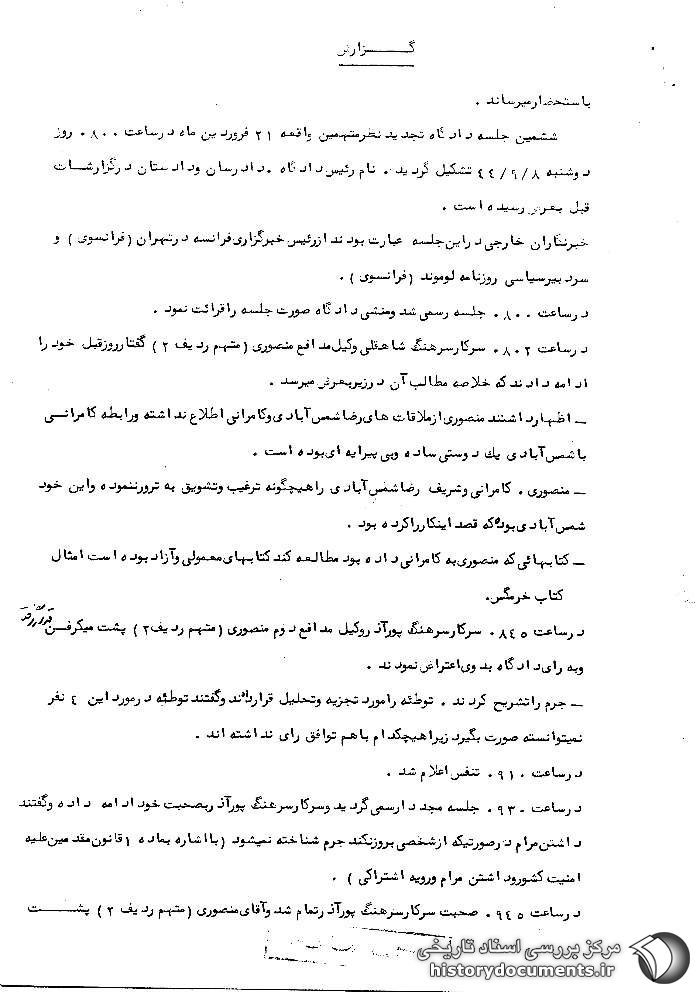 گـــــزارش
باستحضارمیرساند .
ششمین جلسه دادگاه تجدید نظرمتهمین واقعه ۲۱ فروردین ماه درساعت ۰۸۰۰ روز
دوشنبه ۴۴/۹/۸ تشکیل گردید . نام رئیس دادگاه . دادرسان ودادستان درگزارشات
قبل بعرض رسیده است .
خبرنگاران خارجی دراین جلسه عبارت بودند ازرئیس خبرگزاری فرانسه درتهران (فرانسوی ) و
سردبیرسیاسی روزنامه لوموند (فرانسوی ) .
درساعت ۰۸۰۰ جلسه رسمی شد ومنشی دادگاه صورت جلسه راقرائت نمود .
درساعت ۰۸۰۲ سرکارسرهنگ شاهقلی وکیل مدافع منصوری (متهم ردیف ۲ ) گفتارروزقبل خود را
ادامه دادند که خلاصه مطالب آن درزیربعرض میرسد .
ــ اظهارداشتند منصوری ازملاقات های رضا شمس آبادی وکامرانی اطلاع نداشته ورابطه کامرانی
باشمس آبادی یك دوستی ساده وبی پیرایه ای بوده است .
ــ منصوری . کامرانی وشریف رضاشمس آبادی راهیچگونه ترغیب وتشویق به ترورننموده واین خود
شمس آبادی بوده که قصد اینکارراکرده بود .
ــ کتابهائی که منصوری به کامرانی داده بود مطالعه کند کتابهای معمولی وآزاد بوده است امثال
کتاب خرمگس.
درساعت ۰۸۴۵ سرکارسرهنگ پورآذر وکیل مدافع دوم منصوری (متهم ردیف ۲ ) پشت میکرفن
وبه رای دادگاه بدوی اعتراض نمودند .
ــ جرم راتشریح کردند . توطئه رامورد تجزیه وتحلیل قرارداند وگفتند توطئه درمورد این ۴ نفر
نمیتوانسته صورت بگیرد زیراهیچکدام باهم توافق رای نداشته اند .
درساعت ۰۹۱۰ تنفس اعلام شد .
درساعت ۰۹۳۰ جلسه مجددا رسمی گردید وسرکارسرهنگ پورآذر بصحبت خود ادامه داده وگفتند
داشتن مرام درصورتیکه ازشخصی بروزنکند جرم شناخته نمیشود (بااشاره بماده ۱ قانون مقدمین علیه
امنیت کشورود اشتن مرام ورویه اشتراکی ) .
درساعت ۰۹۴۵ صحبت سرکارسرهنگ پورآذر تمام شد وآقای منصوری (متهم ردیف ۲ ) پشـــت
مرکز بررسی اسناد تاریخی
historydocuments.ir